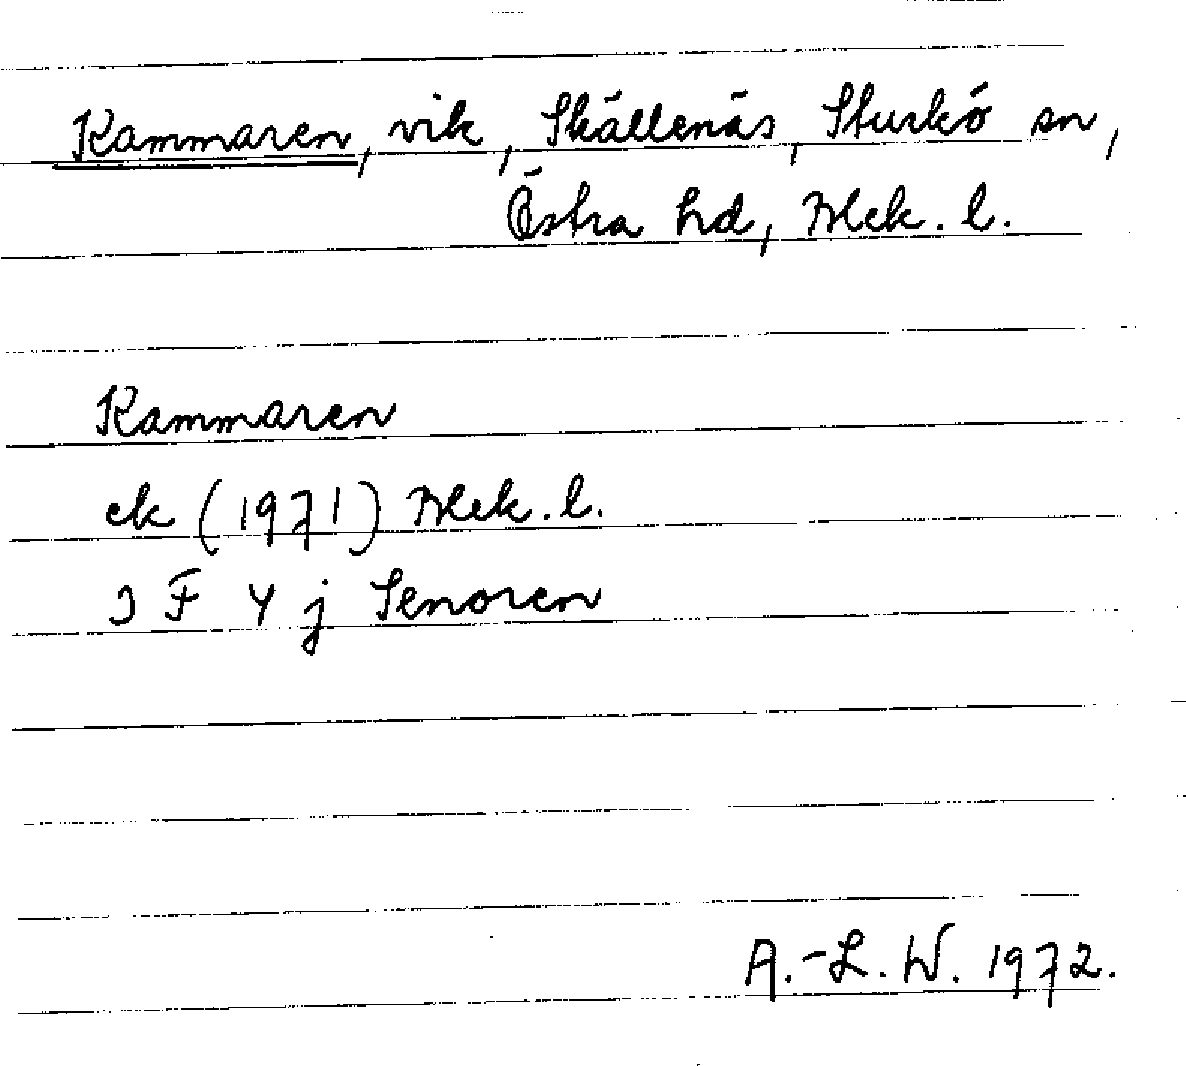 Kammaren, vik, Skällenäs, Sturkö sn,
Östra hd, Blek. l.
Kammaren
ek (1971) Blek. l.
3 F Y j Senoren
A.-L. W. 1972.